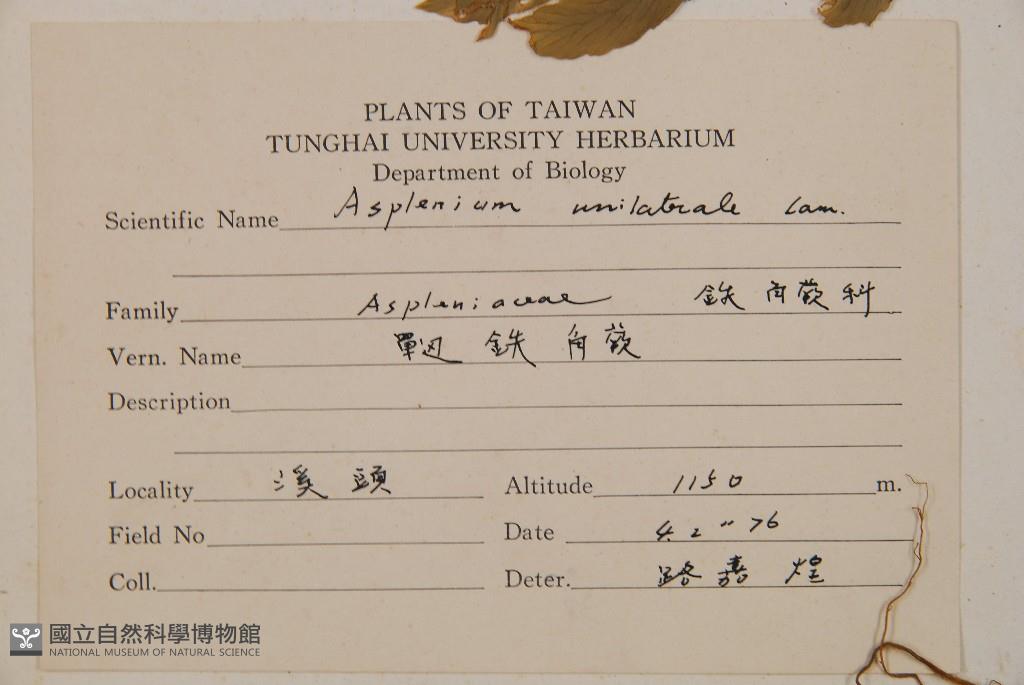 PLANTS OF TAIWAN
TUNGHAI UNIVERSITY HERBARIUM
Department of Biology
Scientific Name Asplenium unilaterale Lam.
Family Aspleniaceae 鉄角蕨科
Vern. Name 單边鉄角蕨
Description
Locality 溪頭 Altitude 1150 m.
Field No Date 4. 2 " 76
Coll. Deter. 路嘉煌
國立自然科學博物館
NATIONAL MUSEUM OF NATURAL SCIENCE